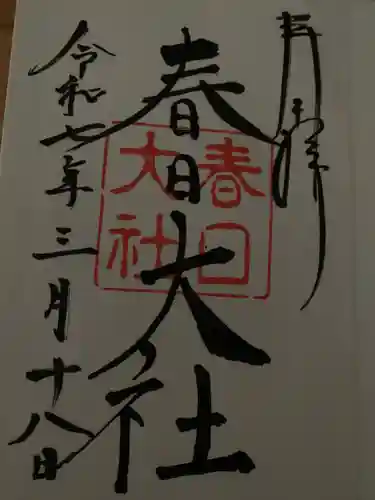 奉拝
春日大社
春日
大社
令和七年三月十八日